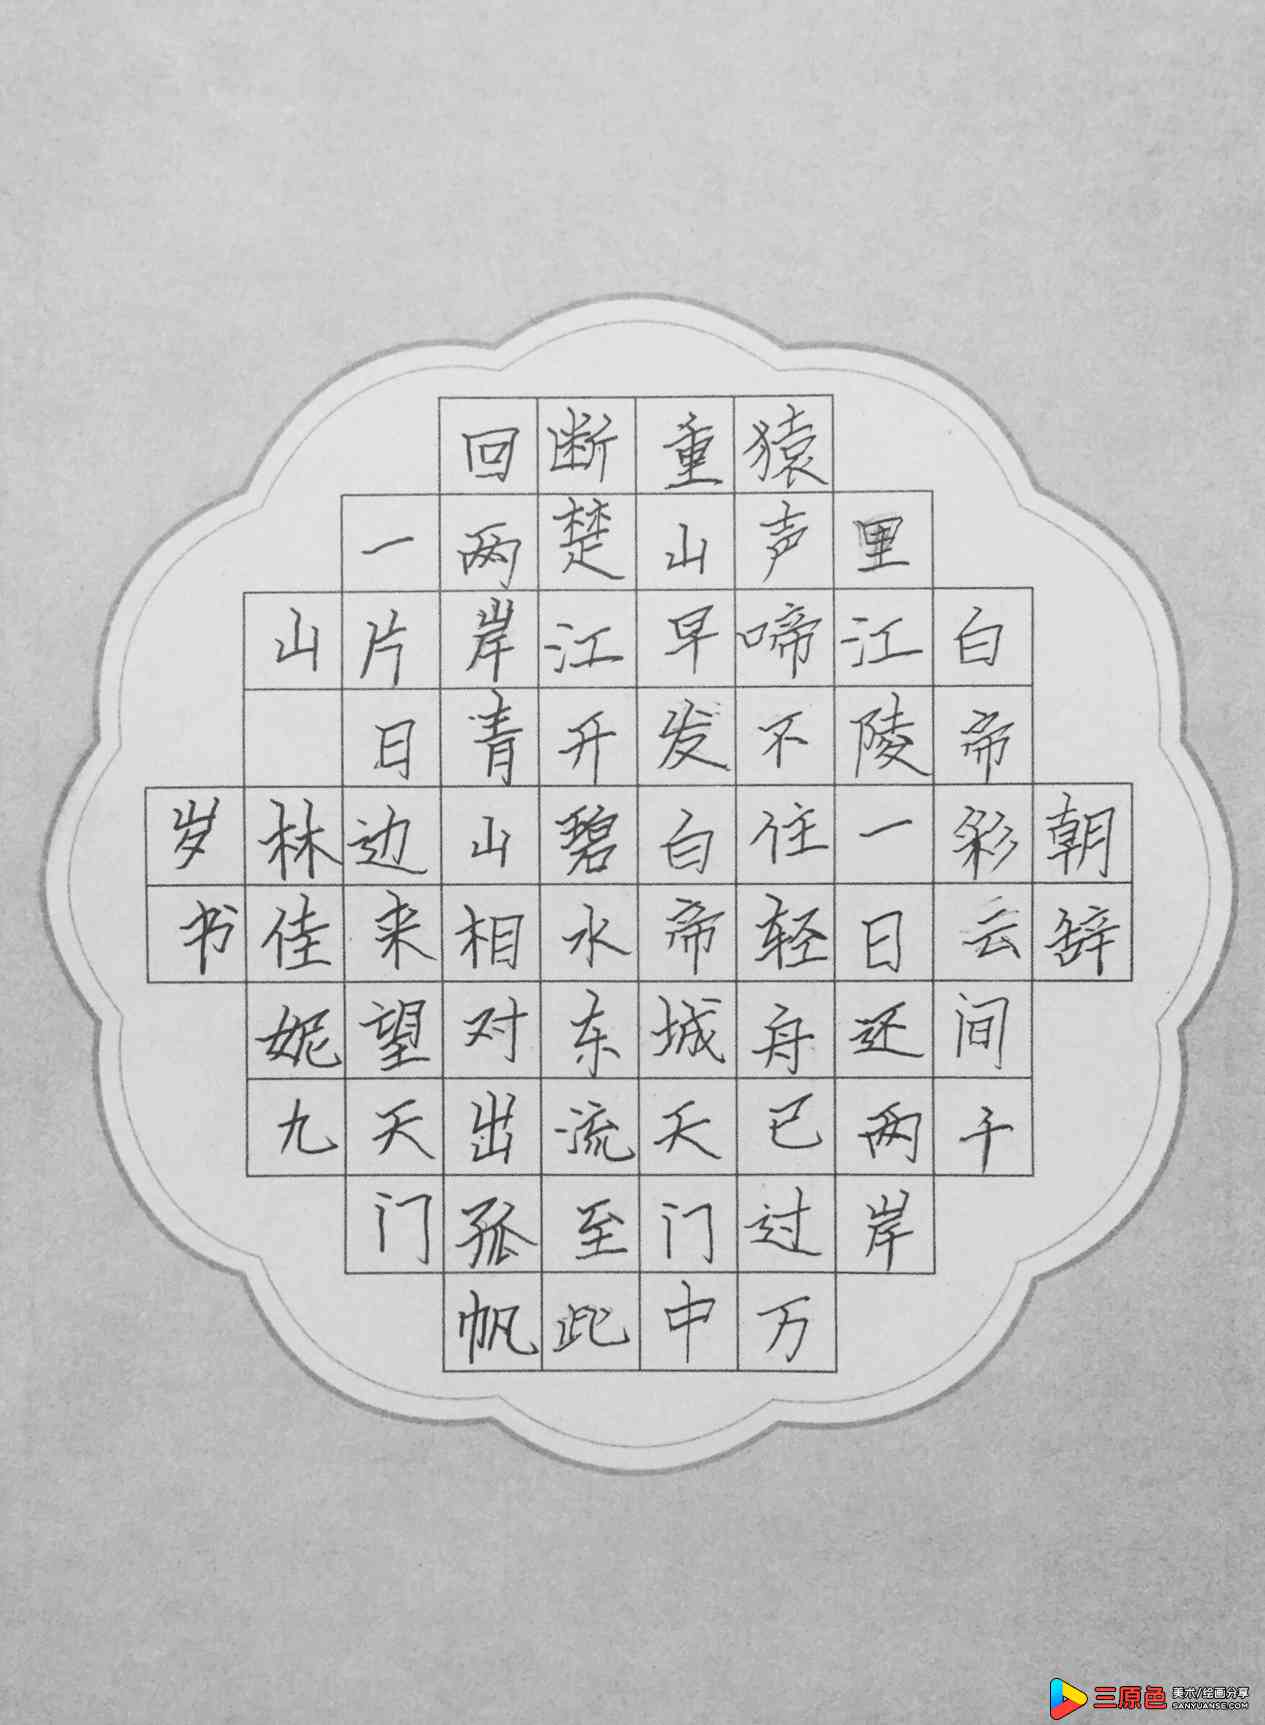 朝辞
白帝彩云间千
里江陵一日还两岸
猿声啼不住轻舟已过万
重山早发白帝城天门中
断楚江开碧水东流至此
回两岸青山相对出孤帆
一片日边来望天门
山 林佳妮九
岁书
三原色 美术/绘画分享
SANYUANSE.COM